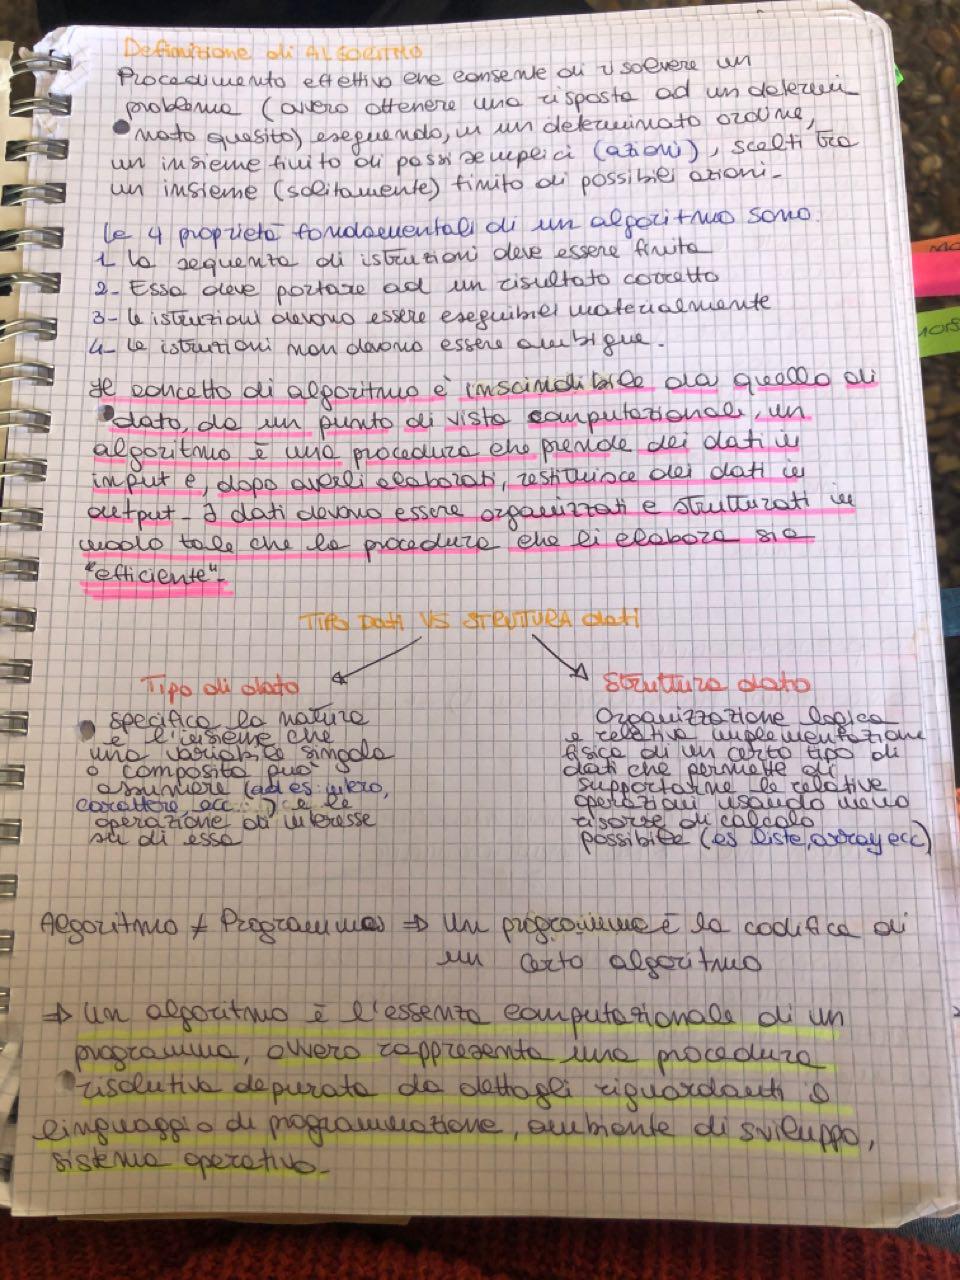 Definizione di ALGORITMO
Procedimento effettivo che consente di risolvere un
problema (ovvero ottenere una risposta ad un determi
nato quesito) eseguendo, in un determinato ordine,
un insieme finito di passi semplici (azioni), scelti tra
un insieme (solitamente) finito di possibili azioni-
Le 4 proprietà fondamentali di un algoritmo sono.
1- la sequenza di istruzioni deve essere finita
2- Essa deve portare ad un risultato corretto
3- le istruzioni devono essere eseguibili materialmente
4- Le istruzioni non devono essere ambigue.
Il concetto di algoritmo è inscindibile da quello di
dato, da un punto di vista computazionale, un
algoritmo è una procedura che prende dei dati in
input e, dopo averli elaborati, restituisce dei dati in
output- I dati devono essere organizzati e strutturati in
modo tale che la procedura che li elabora sia
"efficiente"-
TIPO Dati VS STRUTTURA dati
Tipo di dato
specifica la natura
e l'insieme che
una variabile singola
o composita può
assumere (ad es: intero,
carattere ecc...) e le
operazione di interesse
su di essa
Struttura dato
Organizzazione logica
e relativa implementazione
fisica di un certo tipo di
dati che permette di
supportarne le relative
operazioni usando meno
risorse di calcolo
possibile (es liste, array ecc)
Algoritmo ≠ Programma ⇒ Un programma è la codifica di
un certo algoritmo
⇒ Un algoritmo è l'essenza computazionale di un
programma, ovvero rappresenta una procedura
risolutiva depurata da dettagli riguardanti il
linguaggio di programmazione, ambiente di sviluppo,
sistema operativo-